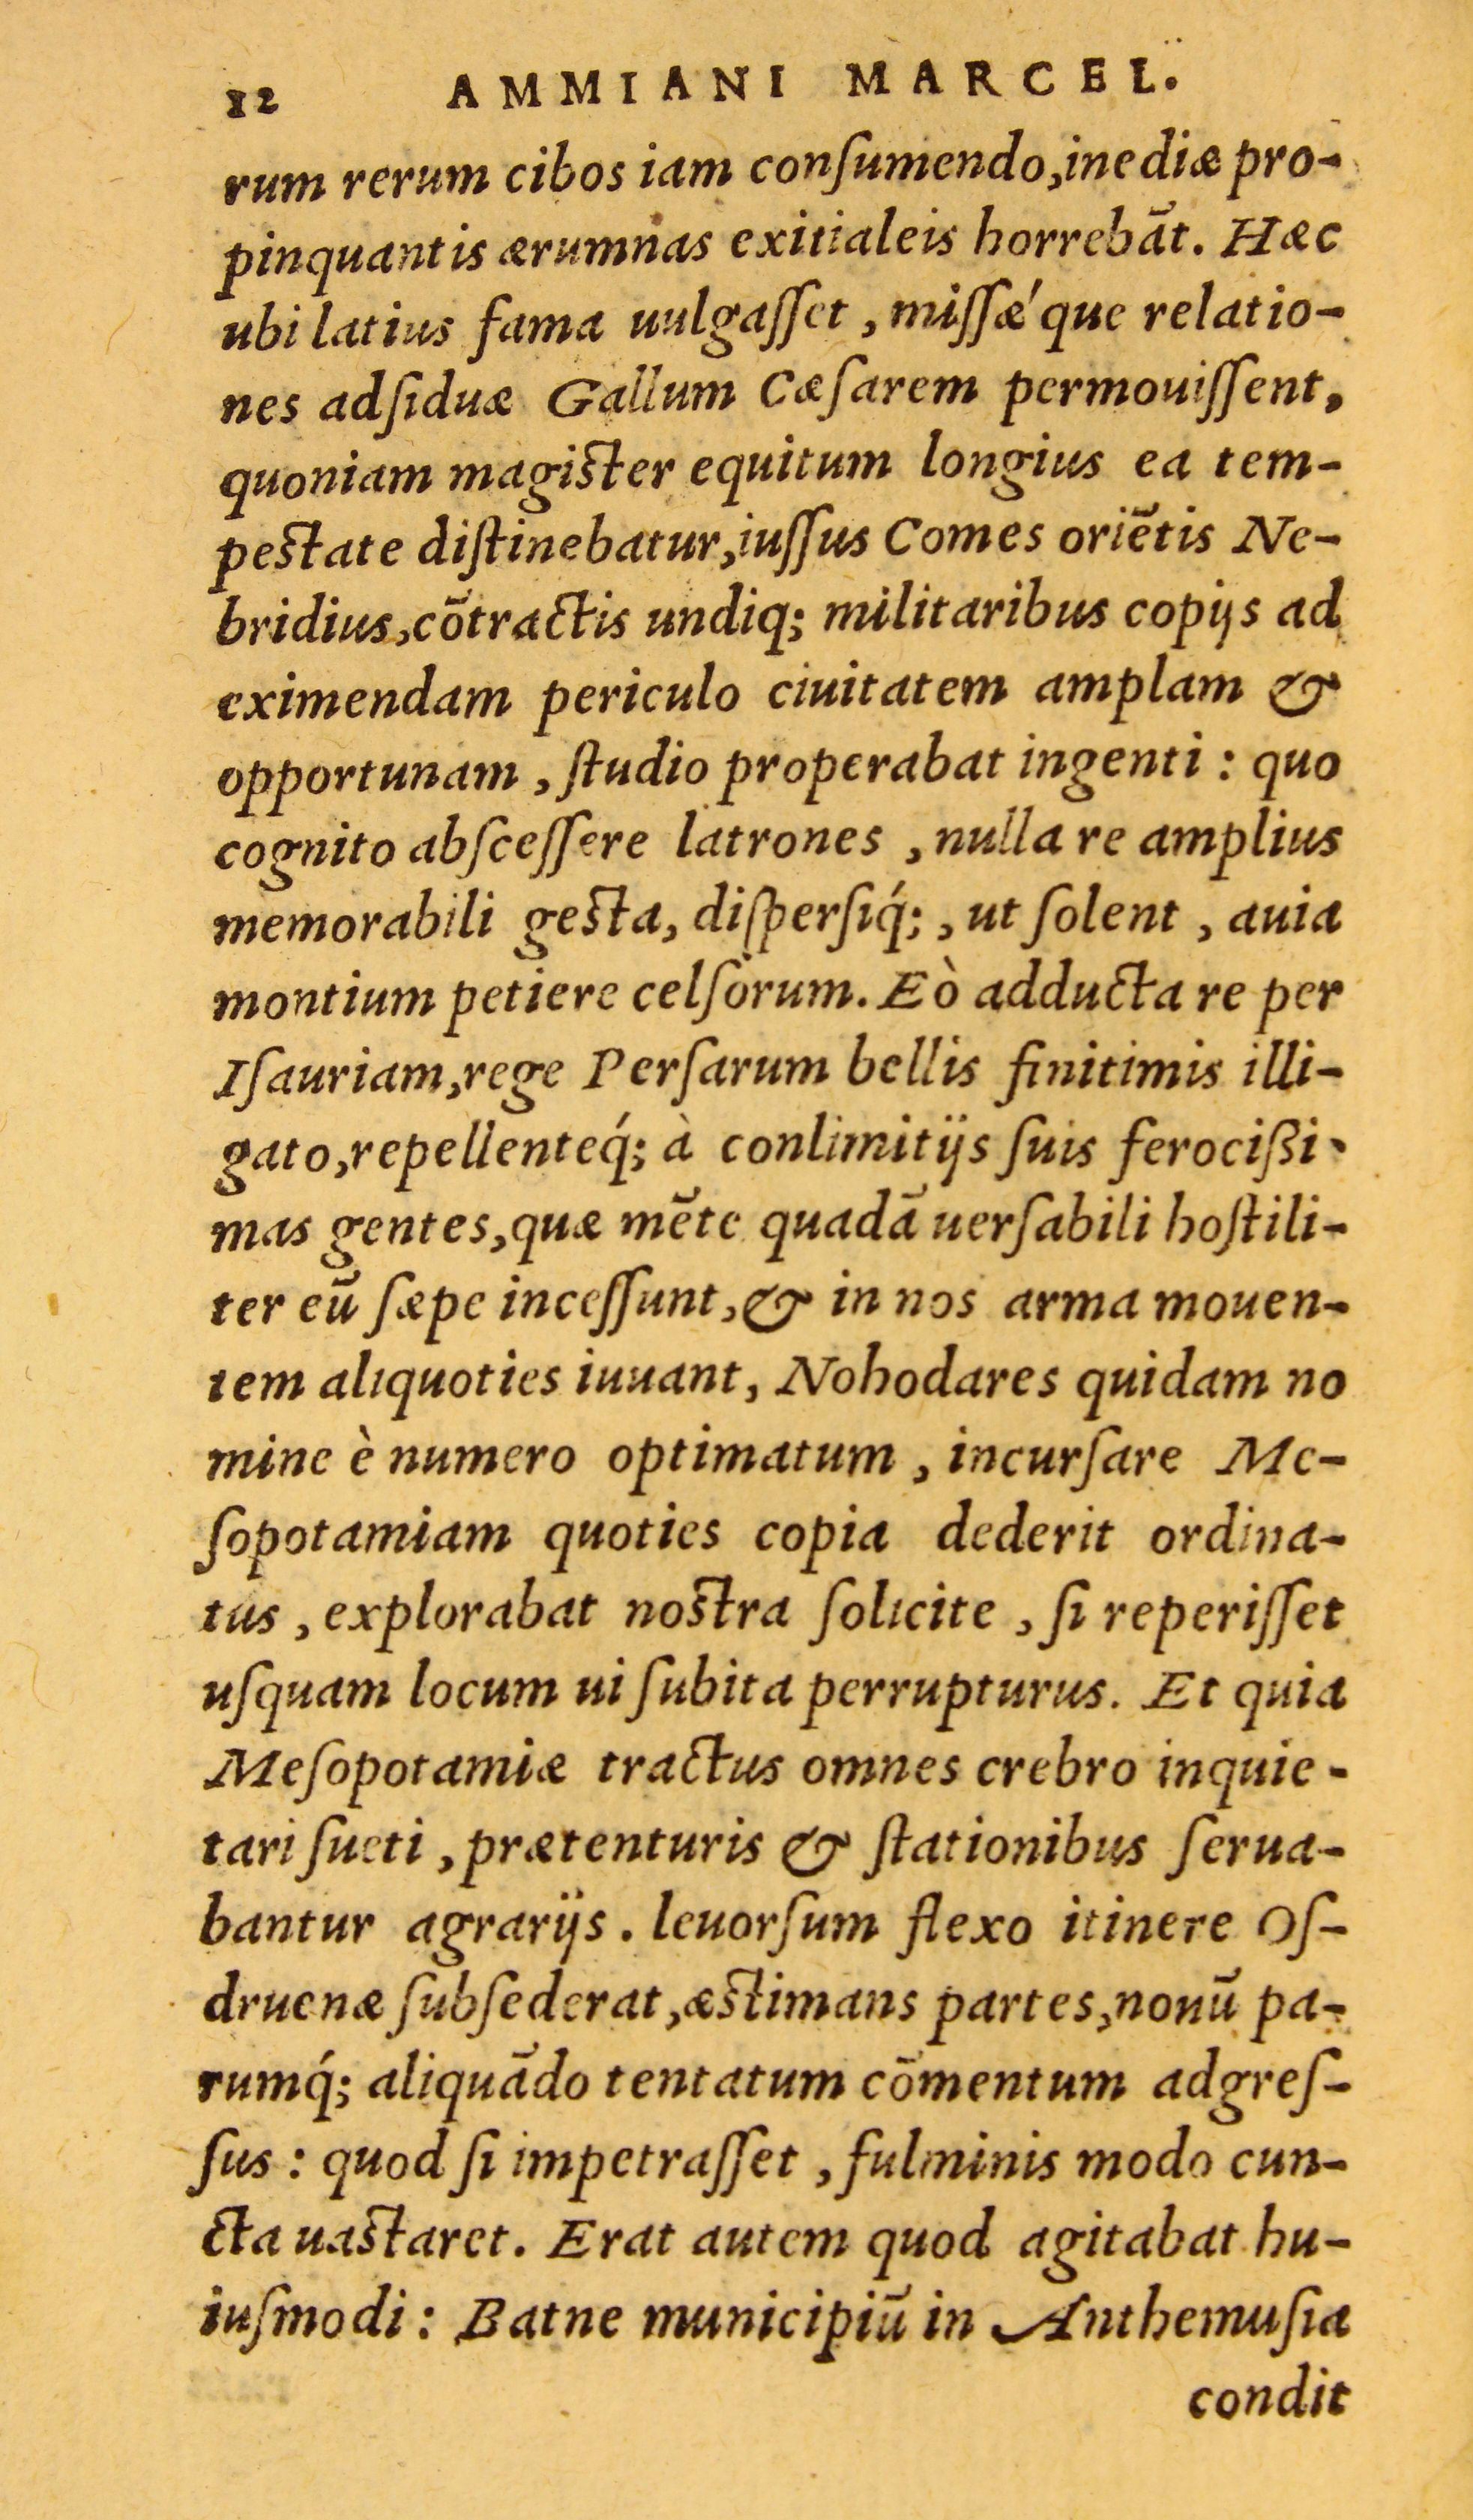 12 AMMIANI MARCEL.
rum rerum cibos iam conſumendo, inediæ pro-
pinquantis ærumnas exitialeis horrebāt. Hæc
ubi latius fama uulgaſſet, miſſǽque relatio-
nes adſiduæ Gallum Cæſarem permouiſſent,
quoniam magiſter equitum longius ea tem-
peſtate diſtinebatur, iuſſus Comes oriētis Ne-
bridius, cōtractis undiq; militaribus copijs ad
eximendam periculo ciuitatem amplam &
opportunam, ſtudio properabat ingenti: quo
cognito abſceſſere latrones, nulla re amplius
memorabili geſta, diſperſiq́;, ut ſolent, auia
montium petiere celſorum. Eò adducta re per
Iſauriam, rege Perſarum bellis finitimis illi-
gato, repellenteq́; à conlimitijs ſuis ferocißi-
mas gentes, quæ mēte quadā uerſabili hoſtili-
ter eū ſæpe inceſſunt, & in nos arma mouen-
tem aliquoties iuuant, Nohodares quidam no
mine è numero optimatum, incurſare Me-
ſopotamiam quoties copia dederit ordina-
tus, explorabat noſtra ſolicite, ſi reperiſſet
uſquam locum ui ſubita perrupturus. Et quia
Meſopotamiæ tractus omnes crebro inquie-
tari ſueti, prætenturis & ſtationibus ſerua-
bantur agrarijs. leuorſum flexo itinere Oſ-
druenæ ſubſederat, æſtimans partes, nonū pa-
rumq́; aliquādo tentatum cōmentum adgreſ-
ſus: quod ſi impetraſſet, fulminis modo cun-
cta uaſtaret. Erat autem quod agitabat hu-
iuſmodi: Batne municipiū in Anthemuſia
condit